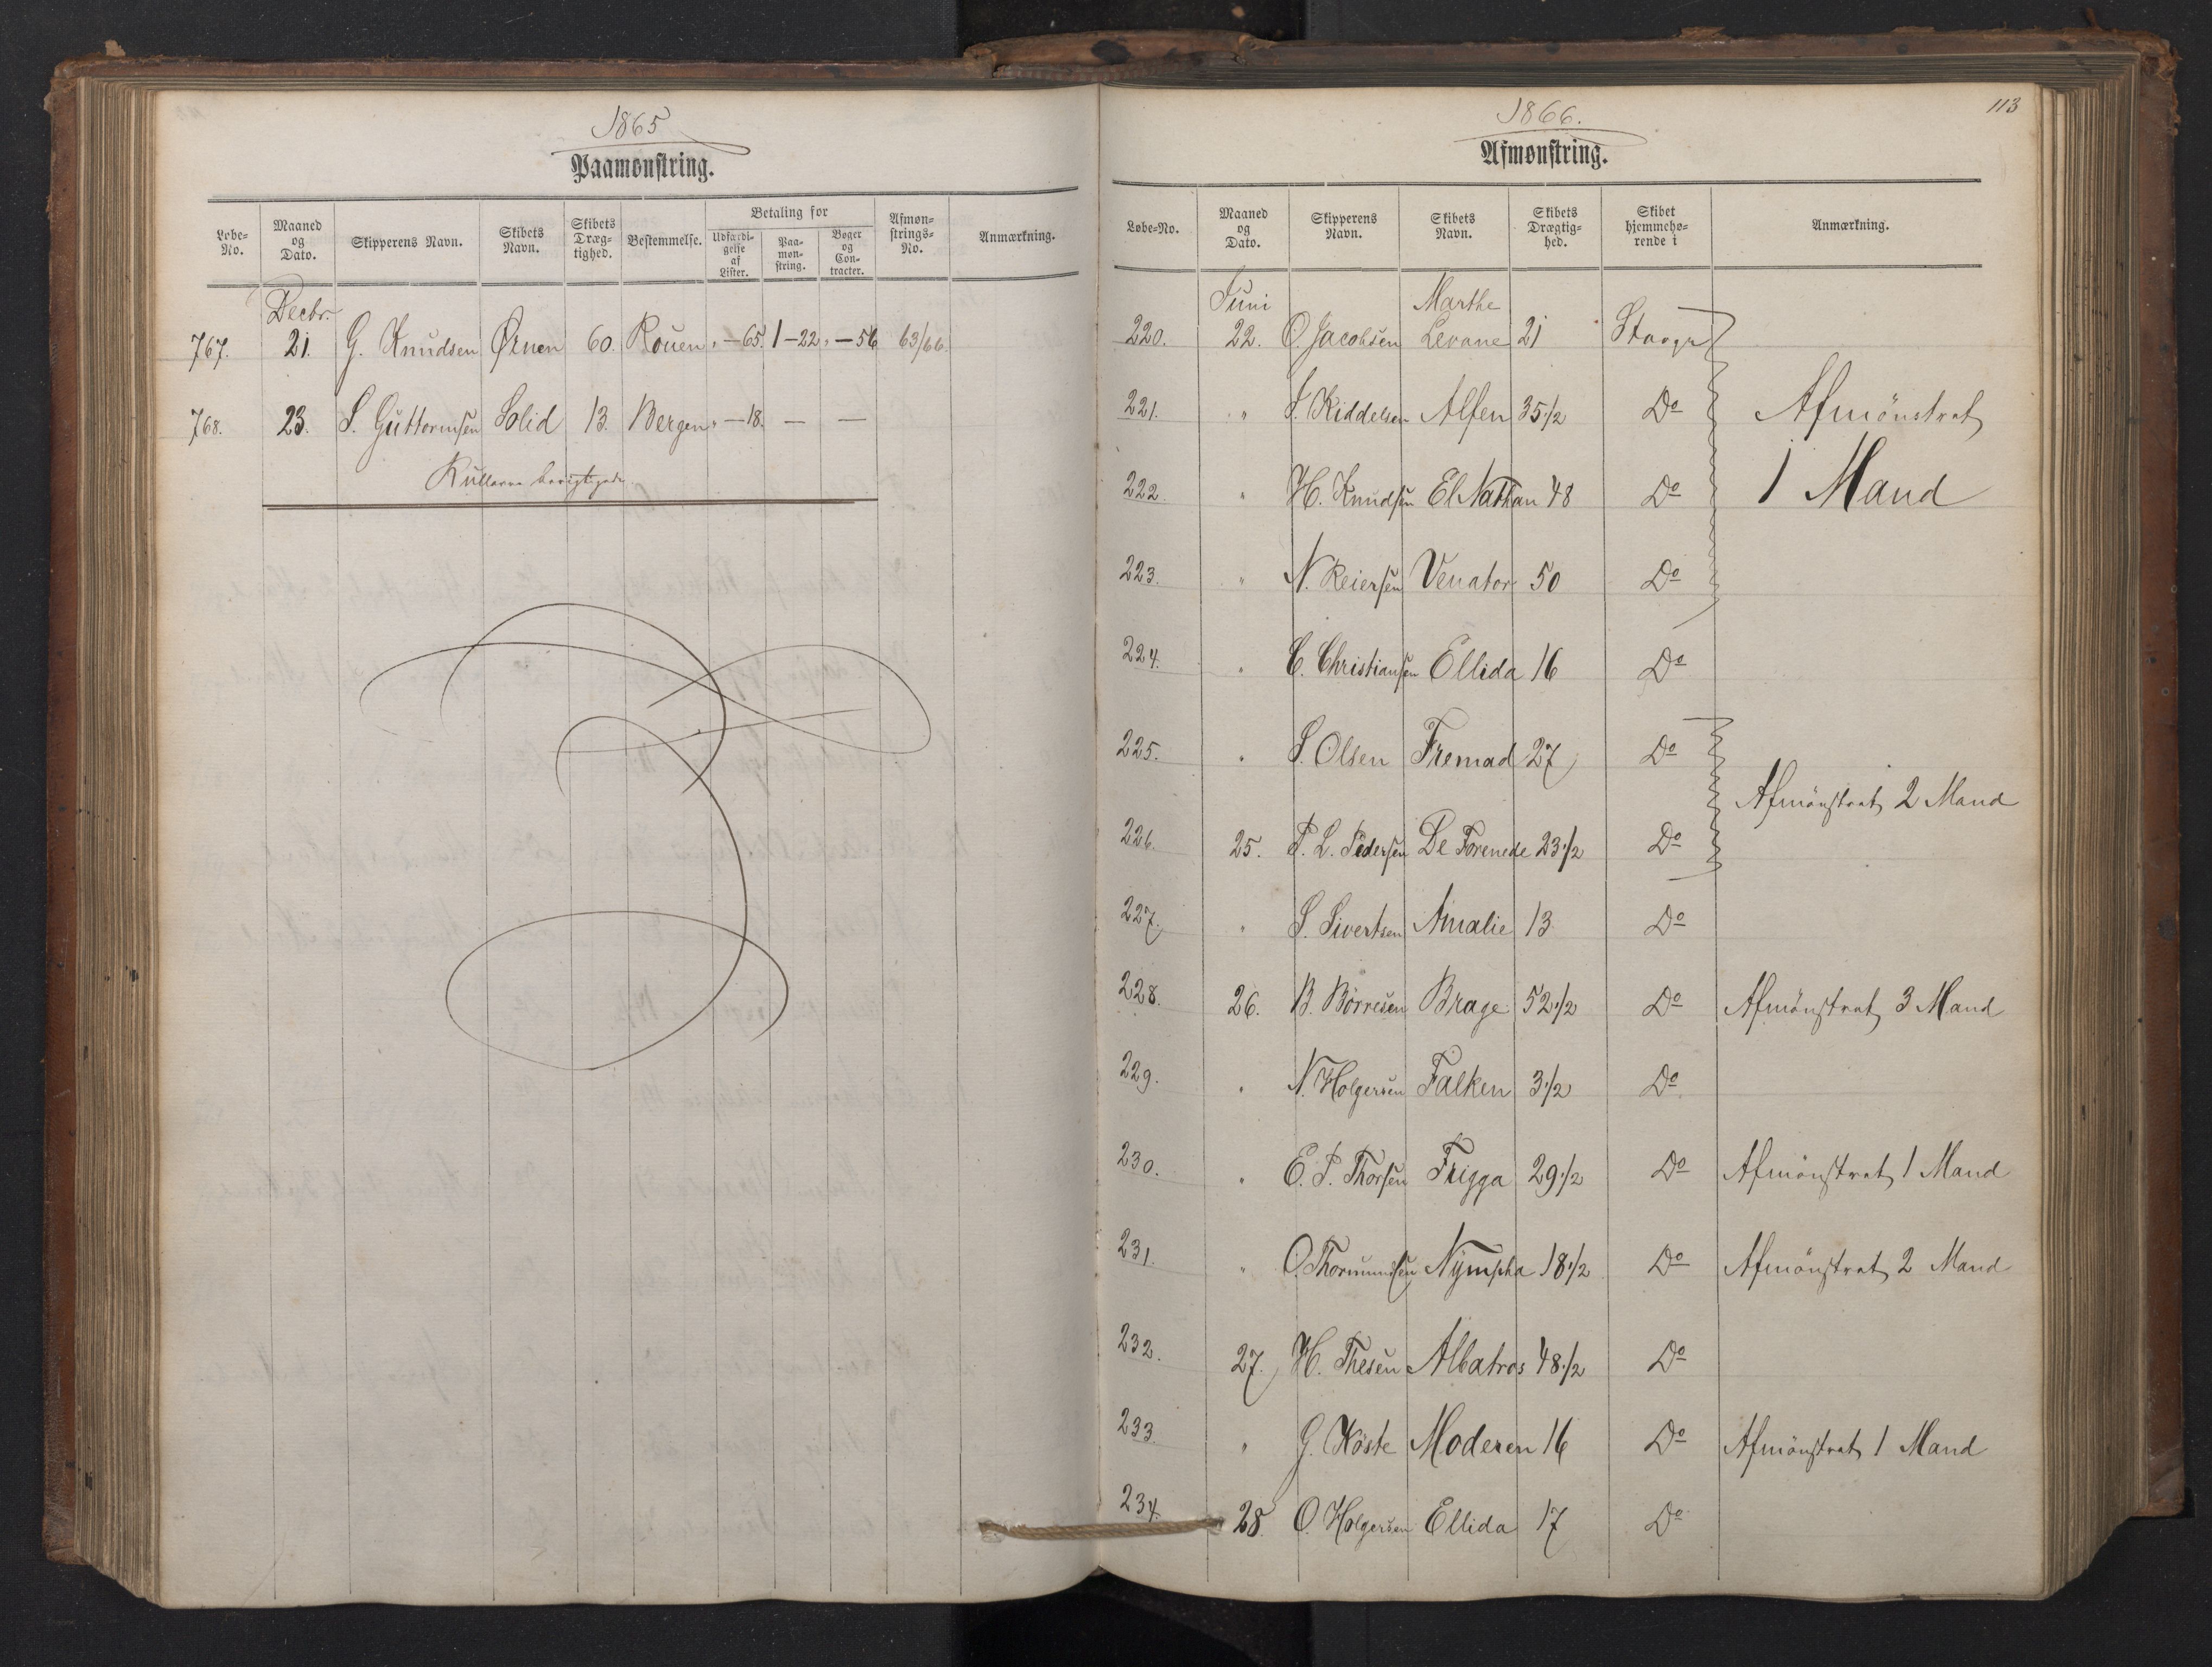 1865
Paamønstring.
Løbe-No. | Maaned og Dato. | Skipperens Navn. | Skibets Navn. | Skibets Dræg-tighed. | Bestemmelse. | Betaling for | Udfærdi-gelse af Lister. | Paa-møn-string. | Bøger og Con-tracter. | Afmøn-strings-No. | Anmærkning.
Decbr.
767. 21. G. Knudsen Ørnen 60. Rouen " — 65. 1 — 22 " — 56 63/66.
768. 23. S. Guttormsen Solid 13. Bergen " — 18. — —
1866.
113
Afmønstring.
Løbe-No. | Maaned og Dato. | Skipperens Navn. | Skibets Navn. | Skibets Drægtig-hed. | Skibet hjemmehø-rende i | Anmærkning.
Juni Marthe
220. 22. O. Jacobsen Levane 21 Stavgr
221. " S. Kiddelsen Alfen 35 1/2 Do Afmönstret
222. " H. Knudsen El Nathan 48 Do 1 Mand
223. " N. Reiersen Venator 50 Do
224. " C. Christiansen Ellida 16 Do
225. " S. Olsen Fremad 27 Do
Afmönstret 2 Mand
226. 25. P. L. Pedersen De Forenede 23 1/2 Do
227. " S. Sivertsen Amalie 13 Do
228. 26. B. Börresen Brage 52 1/2 Do Afmönstret 3 Mand
229. " N. Holgersen Falken 3 1/2 Do.
230. " E. P. Thorsen Frigga 29 1/2 Do Afmönstret 1 Mand
231. " O. Thormundsen Nympha 18 1/2 Do Afmönstret 2 Mand
232. 27. H. Thesen Albatros 48 1/2 Do
233. " G. Höste Moderen 16 Do Afmönstret 1 Mand
234. 28. O. Holgersen Ellida 17 Do